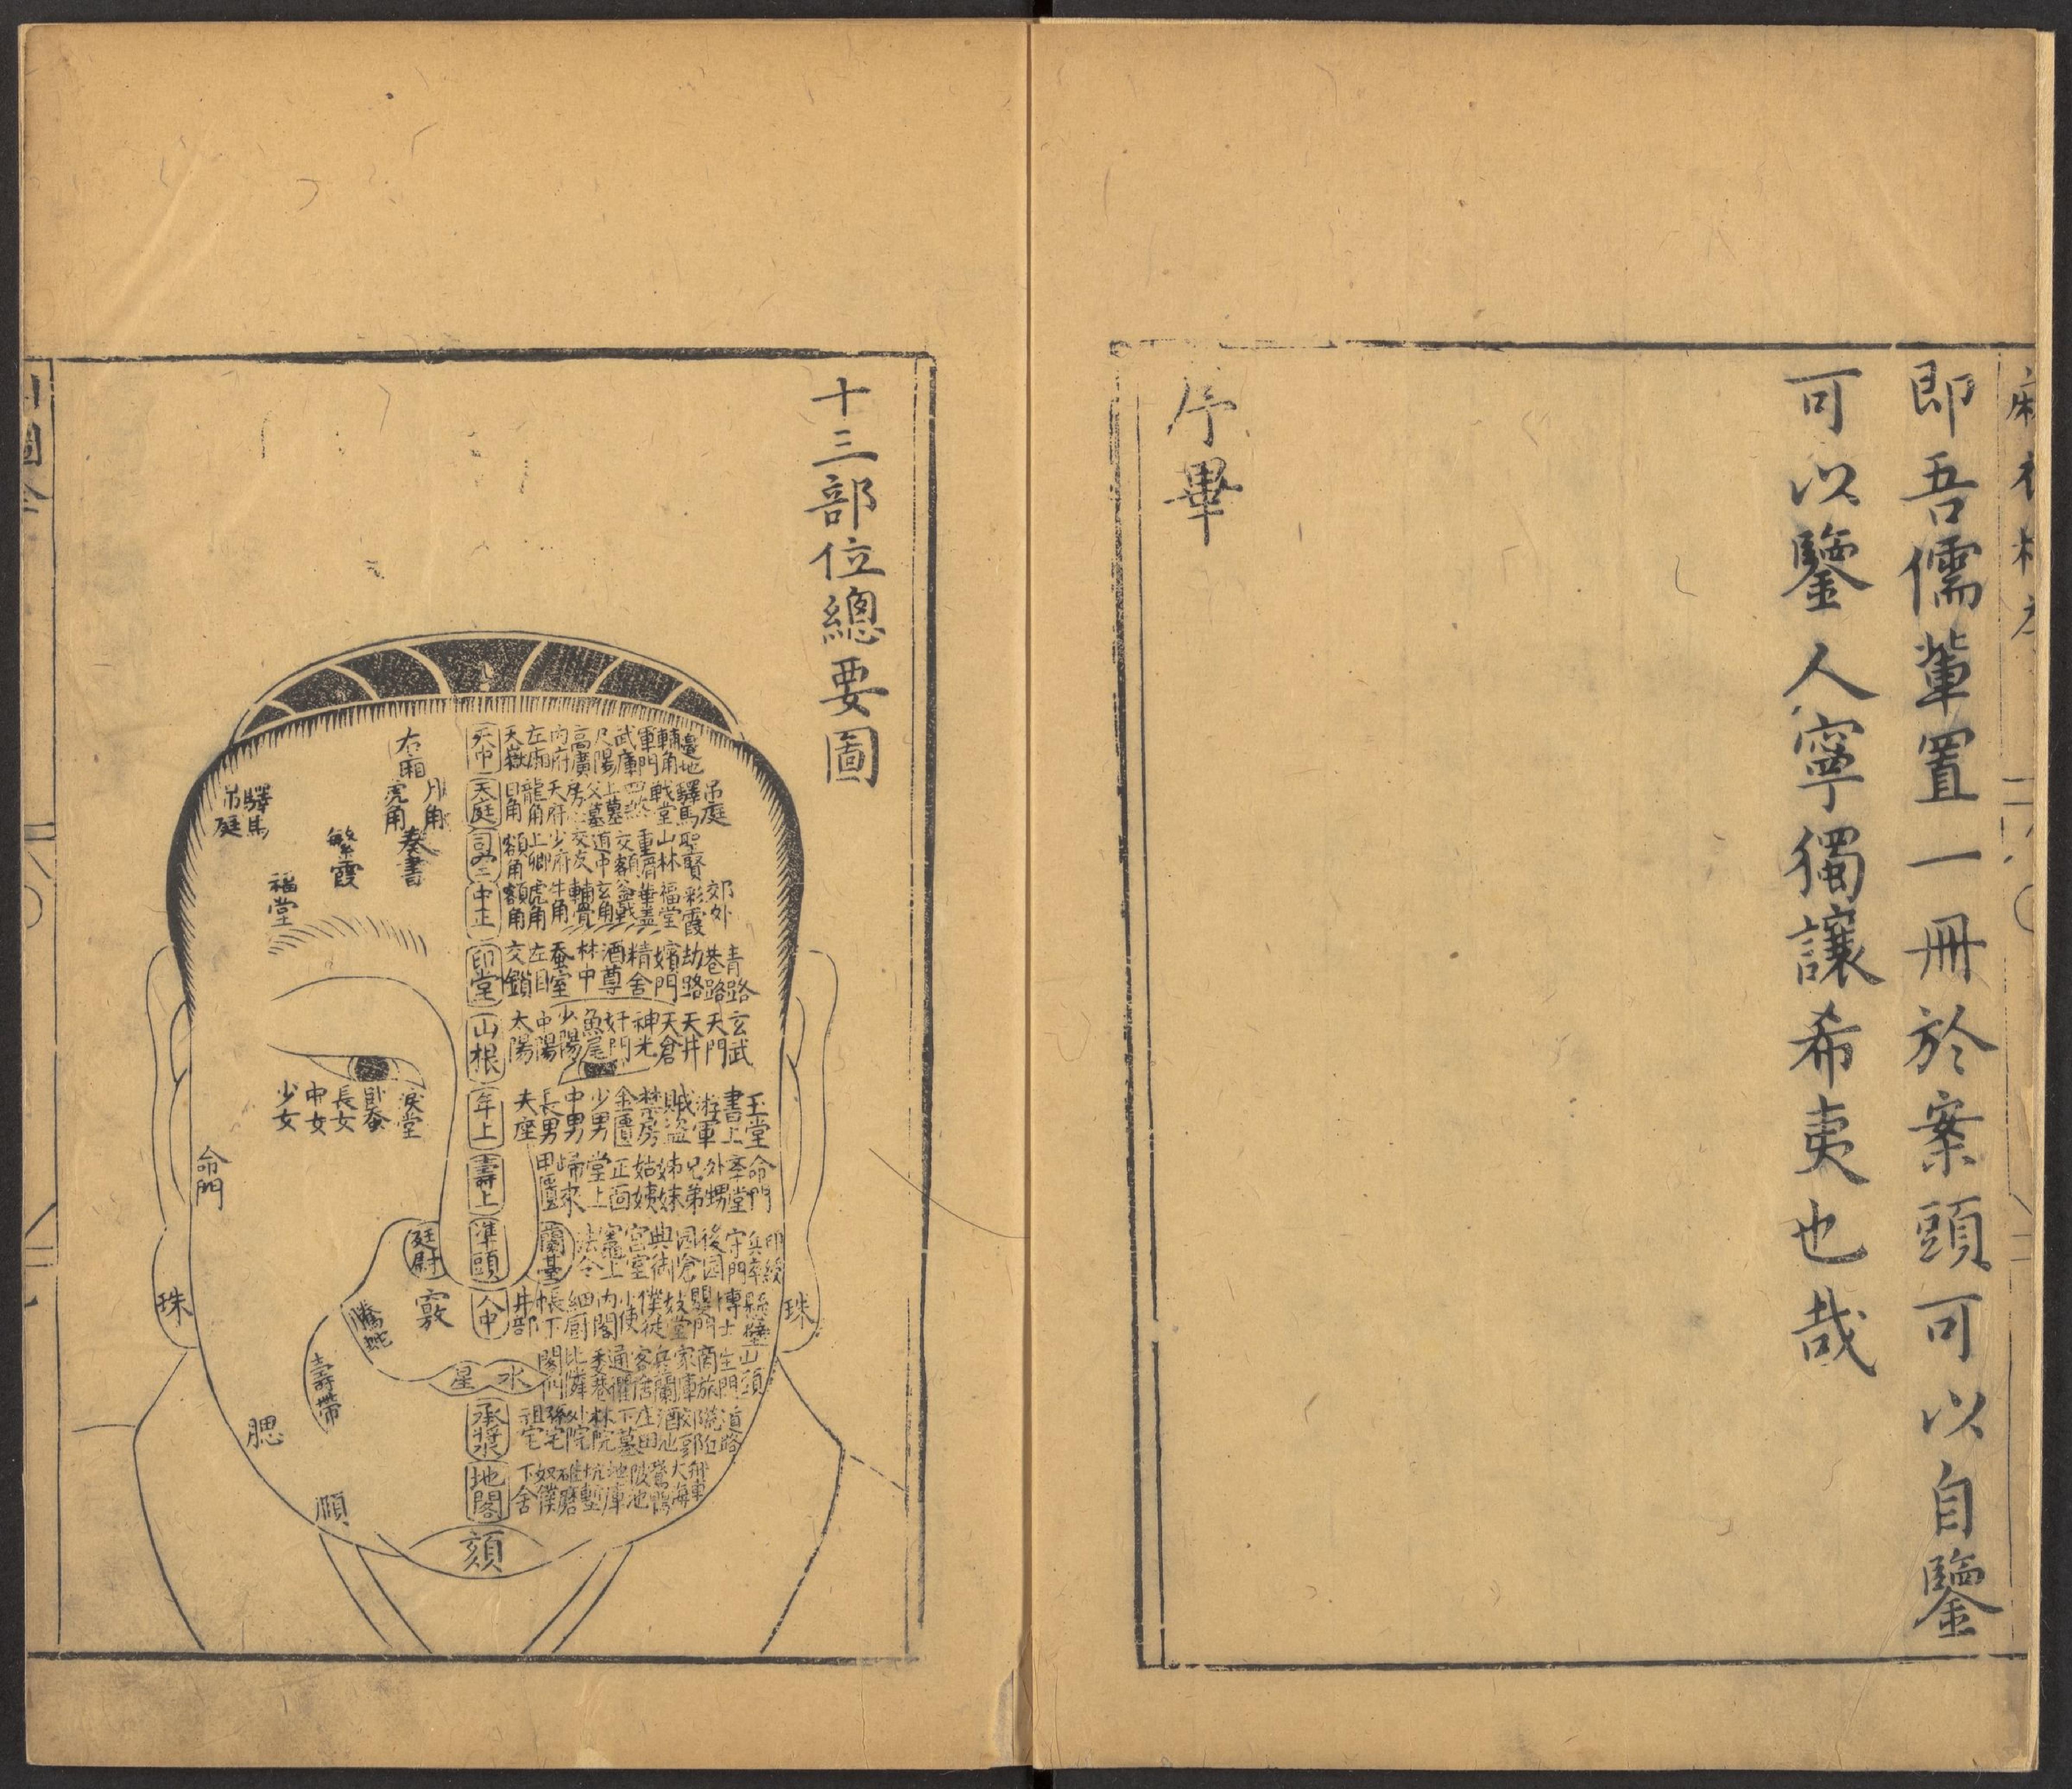 即吾儒輩置一冊於案頭可以自鑒
可以鑒人寧獨讓希夷也哉
序畢
十三部位總要圖
天中
天嶽
左廂
内府
高廣
尺陽
武庫
軍門
輔角
邊地
天庭
日角
龍角
天府
房心
父墓
上墓
四殺
戰堂
驛馬
吊庭
司空
額角
上卿
少府
交友
道中
交額
重眉
山林
聖賢
中正
額角
虎角
牛角
輔骨
玄角
斧戟
華蓋
福堂
彩霞
郊外
印堂
交鎖
左目
蚕室
林中
酒尊
精舍
嬪門
劫路
巷路
青路
山根
太陽
中陽
少陽
魚尾
奸門
神光
天倉
天井
天門
玄武
年上
夫座
長男
中男
少男
金匱
禁房
賊盗
游軍
書上
玉堂
壽上
甲匱
歸來
堂上
正面
姑姨
姊妹
兄弟
外甥
命門
準頭
蘭臺
法令
竈上
宮室
典御
園倉
後園
守門
兵卒
印綬
人中
井部
帳下
細厨
内閣
小使
僕徒
妓堂
嬰門
博士
懸壁
水
星
閣門
比隣
委巷
通衢
客舍
兵蘭
家庫
商旅
生門
山頭
承漿
祖宅
孫宅
外院
林院
下墓
庄田
酒池
郊郭
荒丘
道路
地閣
下舍
奴僕
碓磨
坑塹
地庫
陂池
鵞鴨
大海
舟車
頦
右廂
月角
虎角
奏書
繁霞
驛馬
吊庭
福堂
淚堂
卧蚕
長女
中女
少女
命門
庭尉
騰蛇
壽帶
腮
珠
珠